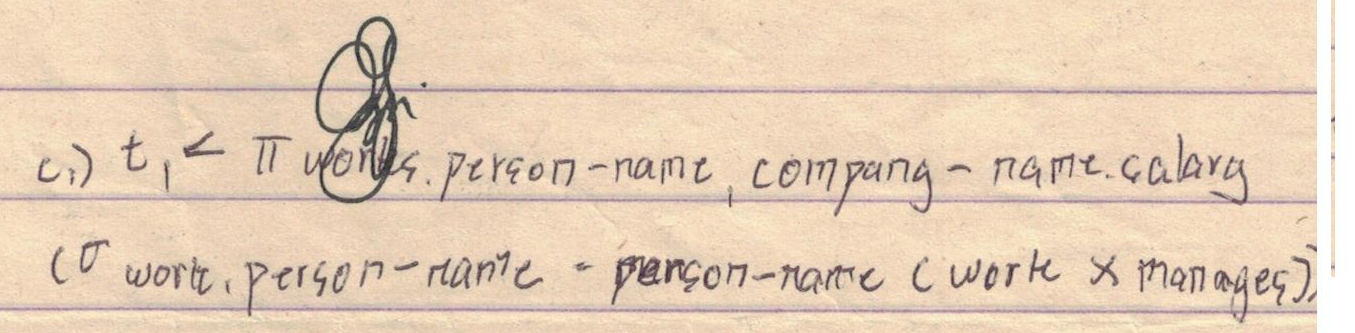 c.) t₁ < π works.person-name, company - name.salary
(σ work.person-name = person-name (work × manages))